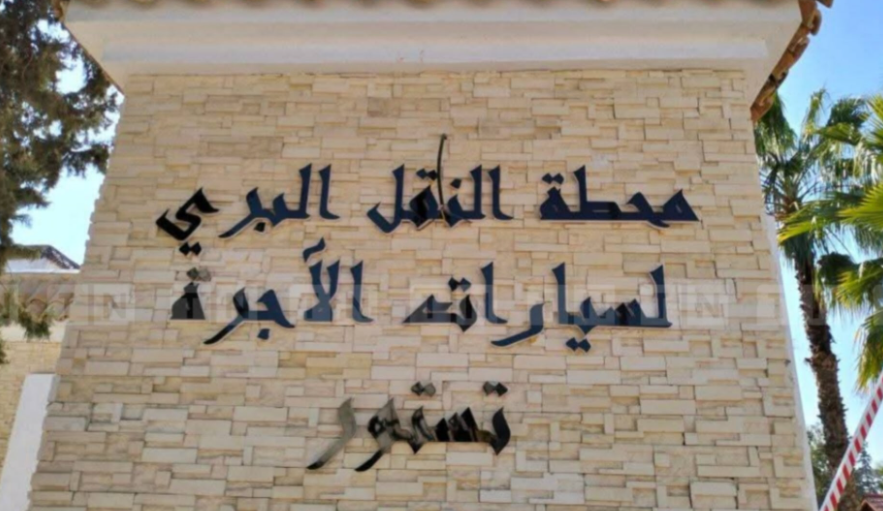 محطة النقل البري
لسيارات الآجرة
تستور